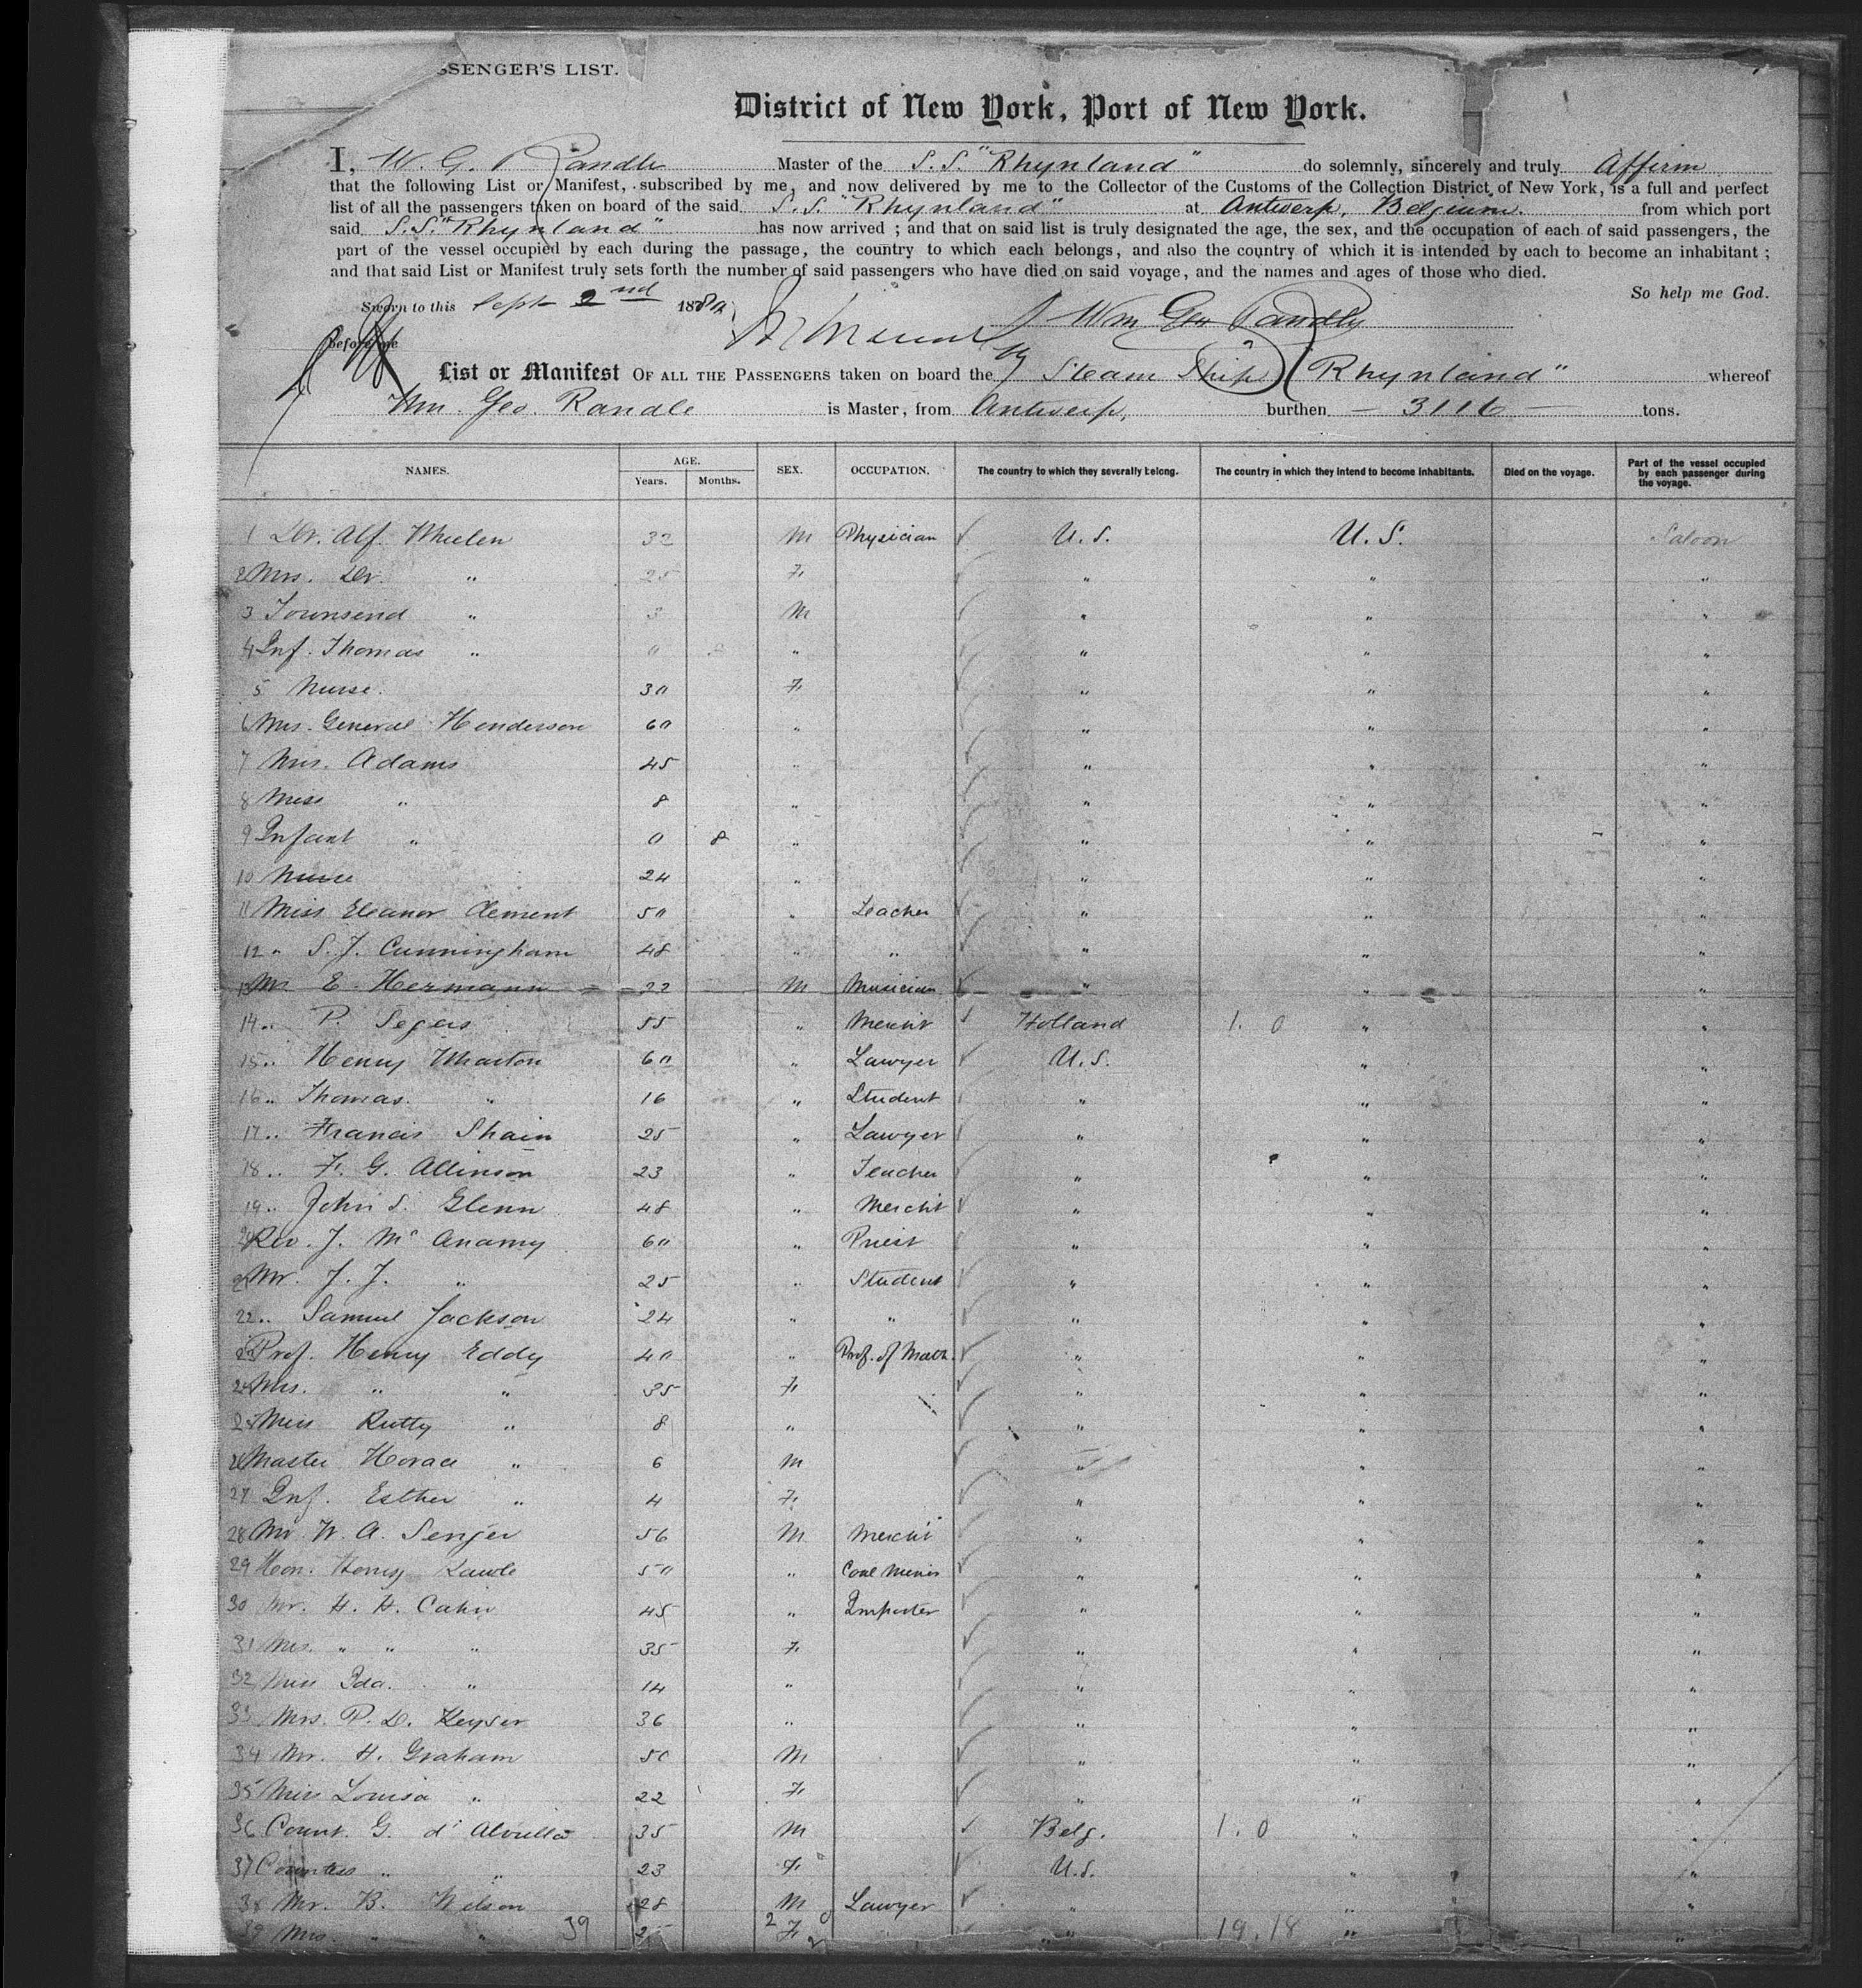 SSENGER'S LIST.
District of New York, Port of New York.
I, W. G. Randle Master of the S.S. "Rhynland" do solemnly, sincerely and truly Affirm
that the following List or Manifest, subscribed by me, and now delivered by me to the Collector of the Customs of the Collection District of New York, is a full and perfect
list of all the passengers taken on board of the said S.S. "Rhynland" at Antwerp, Belgium. from which port
said S.S. "Rhynland" has now arrived ; and that on said list is truly designated the age, the sex, and the occupation of each of said passengers, the
part of the vessel occupied by each during the passage, the country to which each belongs, and also the country of which it is intended by each to become an inhabitant ;
and that said List or Manifest truly sets forth the number of said passengers who have died on said voyage, and the names and ages of those who died.
So help me God.
Sworn to this Sept 2nd 188 Wm Geo Randle
before me
List or Manifest OF ALL THE PASSENGERS taken on board the Steam Ship "Rhynland" whereof
Wm. Geo. Randle is Master, from Antwerp, burthen — 3116 — tons.
NAMES. AGE. Years. Months. SEX. OCCUPATION. The country to which they severally belong. The country in which they intend to become inhabitants. Died on the voyage. Part of the vessel occupied by each passenger during the voyage.
1 Dr. Alf. Whelen 32 M Physician U.S. U.S. Saloon
2 Mrs. Dr. " 25 F. " " "
3 Townsend " 3 M " " "
4 Inf. Thomas " 0 8 " " " "
5 Nurse. 30 F. " " "
6 Mrs. General Henderson 60 " " " "
7 Mrs. Adams 45 " " " "
8 Miss " 8 " " " "
9 Infant " 0 8 " " " "
10 Nurse 24 " " " "
11 Miss Eleanor Clement 50 " Teacher " " "
12 " S. J. Cunningham 48 " " " " "
13 Mr. E. Hermann 22 M Musician " " "
14 " P. Segers 55 " Mercht Holland 1. 0 " "
15 " Henry Wharton 60 " Lawyer U.S. " "
16 " Thomas " 16 " Student " " "
17 " Francis Shain 25 " Lawyer " " "
18 " F. G. Allinson 23 " Teacher " " "
19 " John S. Glenn 48 " Mercht " " "
20 Rev. J. Mc Anamy 60 " Priest " " "
21 Mr. J. J. " 25 " Student " " "
22 " Samuel Jackson 24 " " " " "
23 Prof. Henry Eddy 40 " Prof. of Math. " " "
24 Mrs. " " 35 F. " " "
25 Miss Rutty " 8 " " " "
26 Master Horace " 6 M " " "
27 Inf. Esther " 4 F. " " "
28 Mr. W. A. Senger 56 M Mercht " " "
29 Hon. Henry 50 " Coal Miner " " "
30 Mr. H. H. Cahn 45 " Importer " " "
31 Mrs. " " " 35 F. " " "
32 Miss Ida. " 14 " " " "
33 Mrs. P. D. Keyser 36 " " " "
34 Mr. H. Graham 50 M " " "
35 Miss Louisa " 22 F. " " "
36 Count. G. d'Alviella 35 M Belg. 1. 0 " "
37 Countess " " 23 F. U.S. " "
38 Mr. B. Wilson 28 M Lawyer " " "
39 Mrs. " " 39 25 2 F. " 19.18 " "